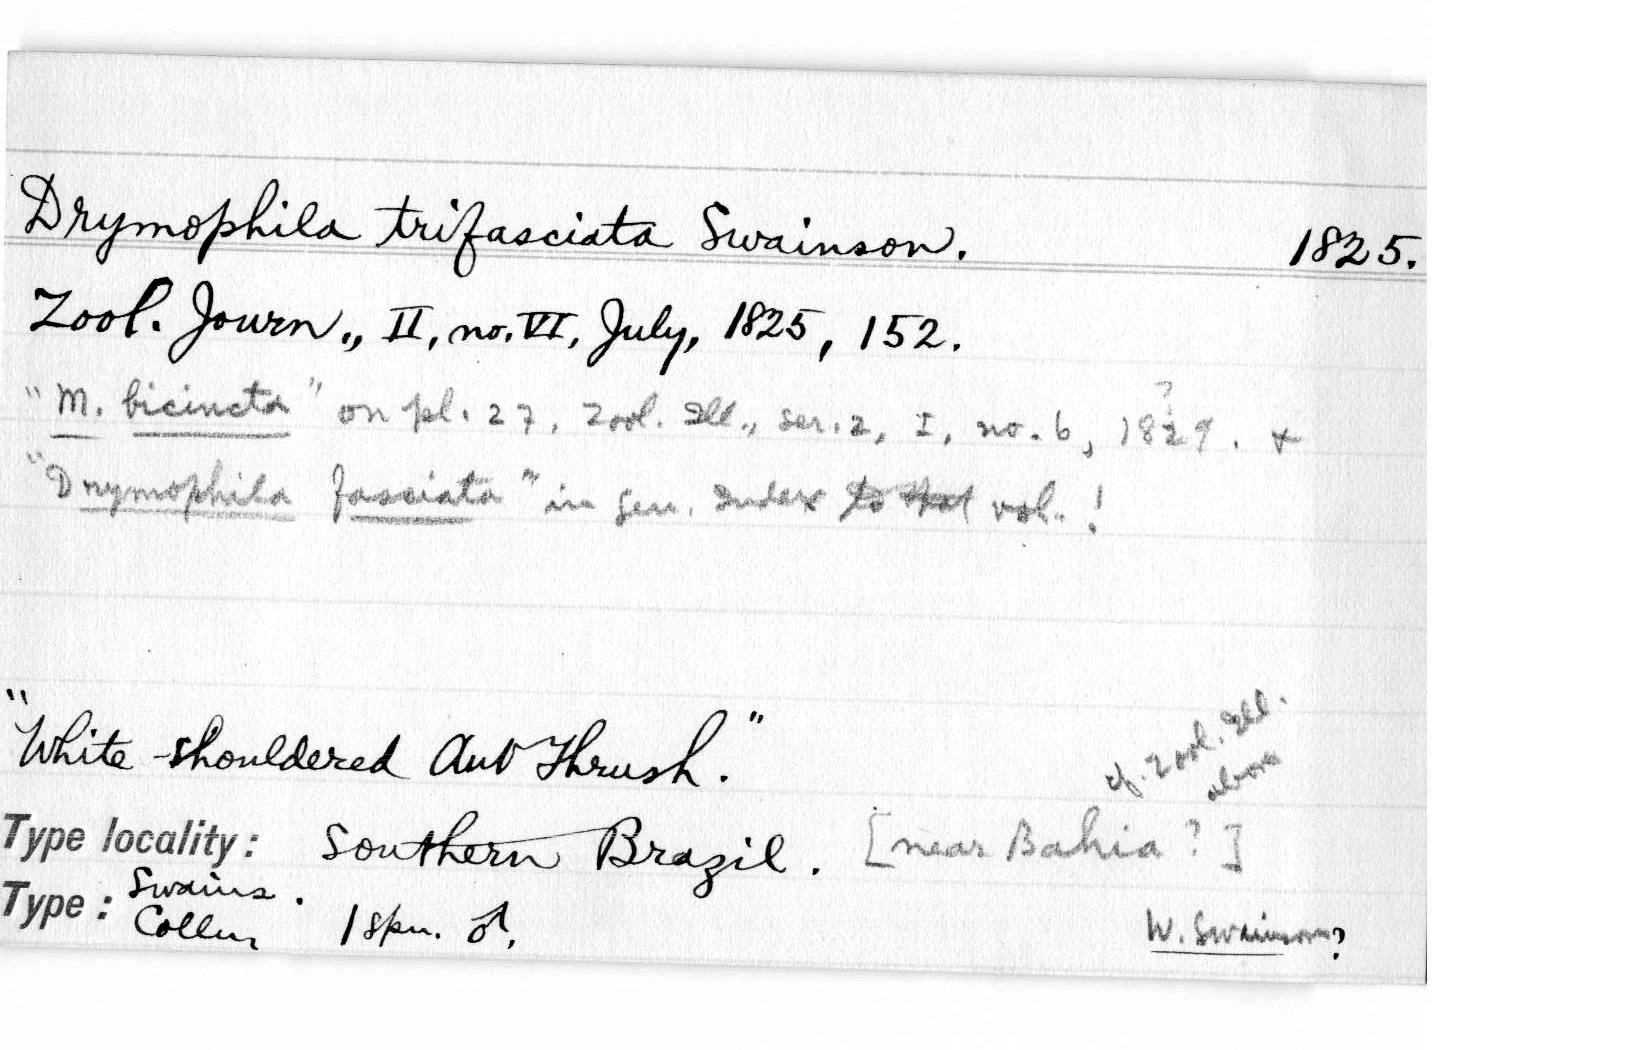 Drymophila trifasciata Swainson. 1825.
Zool. Journ., II, no. VI, July, 1825, 152.
"M. bicincta" on pl. 27, Zool. Ill., ser. 2, I, no. 6, 1829. ? +
"Drymophila fasciata" in gen. Index to that vol. !
"White-shouldered Ant Thrush."
cf. Zool. Ill.
above
Type locality: Southern Brazil. [near Bahia ?]
Type: Swains.
Colln 1 spn. ♂.
W. Swainson?